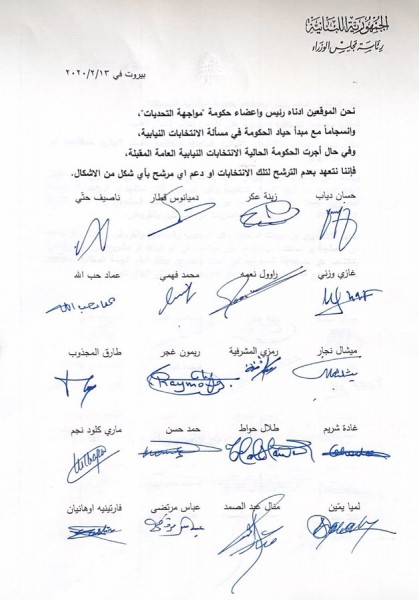 الجمهورية اللبنانية
رئاسة مجلس الوزراء
بيروت في ٢٠٢٠/٢/١٣
نحن الموقعين ادناه رئيس واعضاء حكومة "مواجهة التحديات"،
وانسجاماً مع مبدأ حياد الحكومة في مسألة الانتخابات النيابية،
وفي حال أجرت الحكومة الحالية الانتخابات النيابية العامة المقبلة،
فإننا نتعهد بعدم الترشح لتلك الانتخابات او دعم اي مرشح بأي شكل من الاشكال.
حسان دياب زينة عكر دميانوس قطار ناصيف حتّي
غازي وزني راوول نعمه محمد فهمي عماد حب الله
عماد حب الله
ميشال نجار رمزي المشرفية ريمون غجر طارق المجذوب
Raymond
غادة شريم طلال حواط حمد حسن ماري كلود نجم
لميا يمّين منال عبد الصمد عباس مرتضى فارتينيه اوهانيان